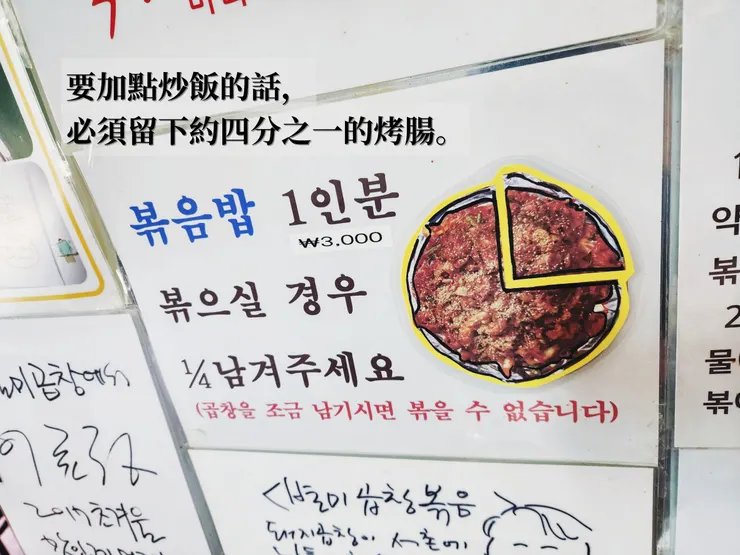 要加點炒飯的話,
必須留下約四分之一的烤腸。
볶음밥 1인분
₩3,000
볶으실 경우
¼남겨주세요
(곱창을 조금 남기시면 볶을 수 없습니다)
약
볶
2
물
볶
곱창에서
2017 초겨울
별미곱창볶음
돼지곱창이 서촌에